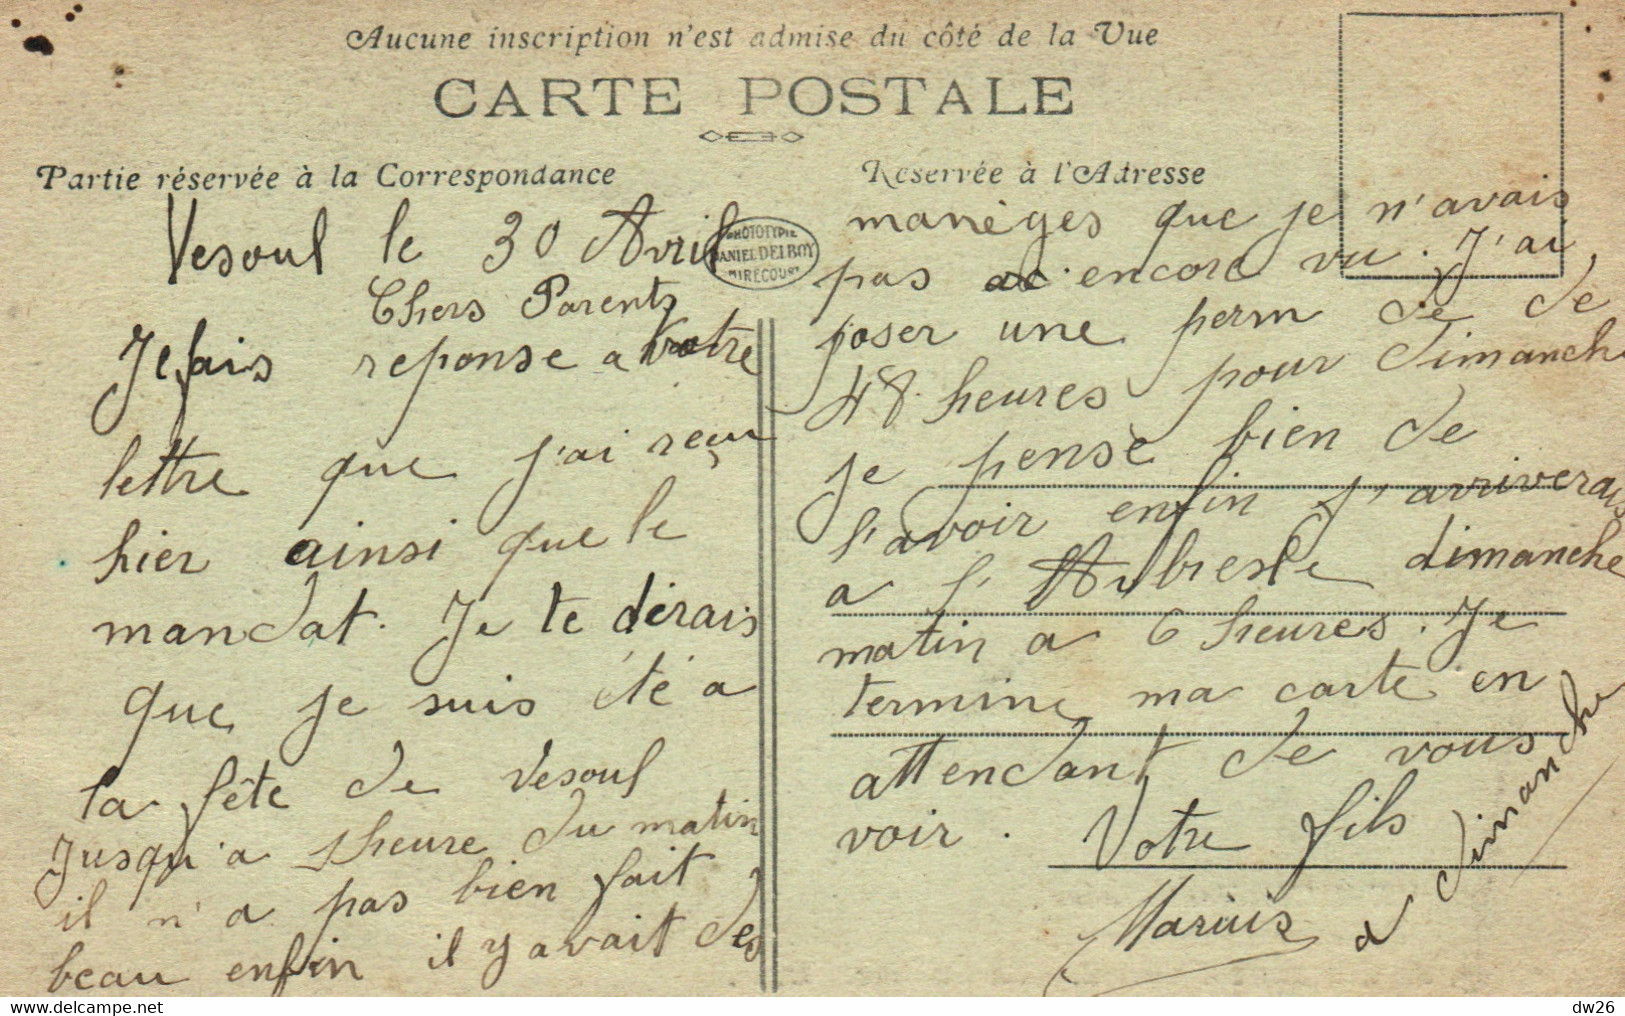 Aucune inscription n'est admise du côté de la Vue
CARTE POSTALE
Partie réservée à la Correspondance
Réservée à l'Adresse
PHOTOTYPIE
DANIEL DELBOY
MIRECOURT
Vesoul le 30 Avril
Chers Parents
Je fais reponse a votre
lettre que j'ai reçu
hier ainsi que le
mandat. Je te dérais
que je suis été a
la fête de Vesoul
jusqu'a 1 heure du matin
il n'a pas bien fait
beau enfin il y avait des
manèges que je n'avais
pas encore vu. J'ai
poser une perm de de
48 heures pour dimanche
je pense bien de
l'avoir enfin j'arriverais
a l'Aubresle dimanche
matin a 6 heures. Je
termine ma carte en
attendant de vous
voir. Votre fils
Marius
a dimanche
dw26